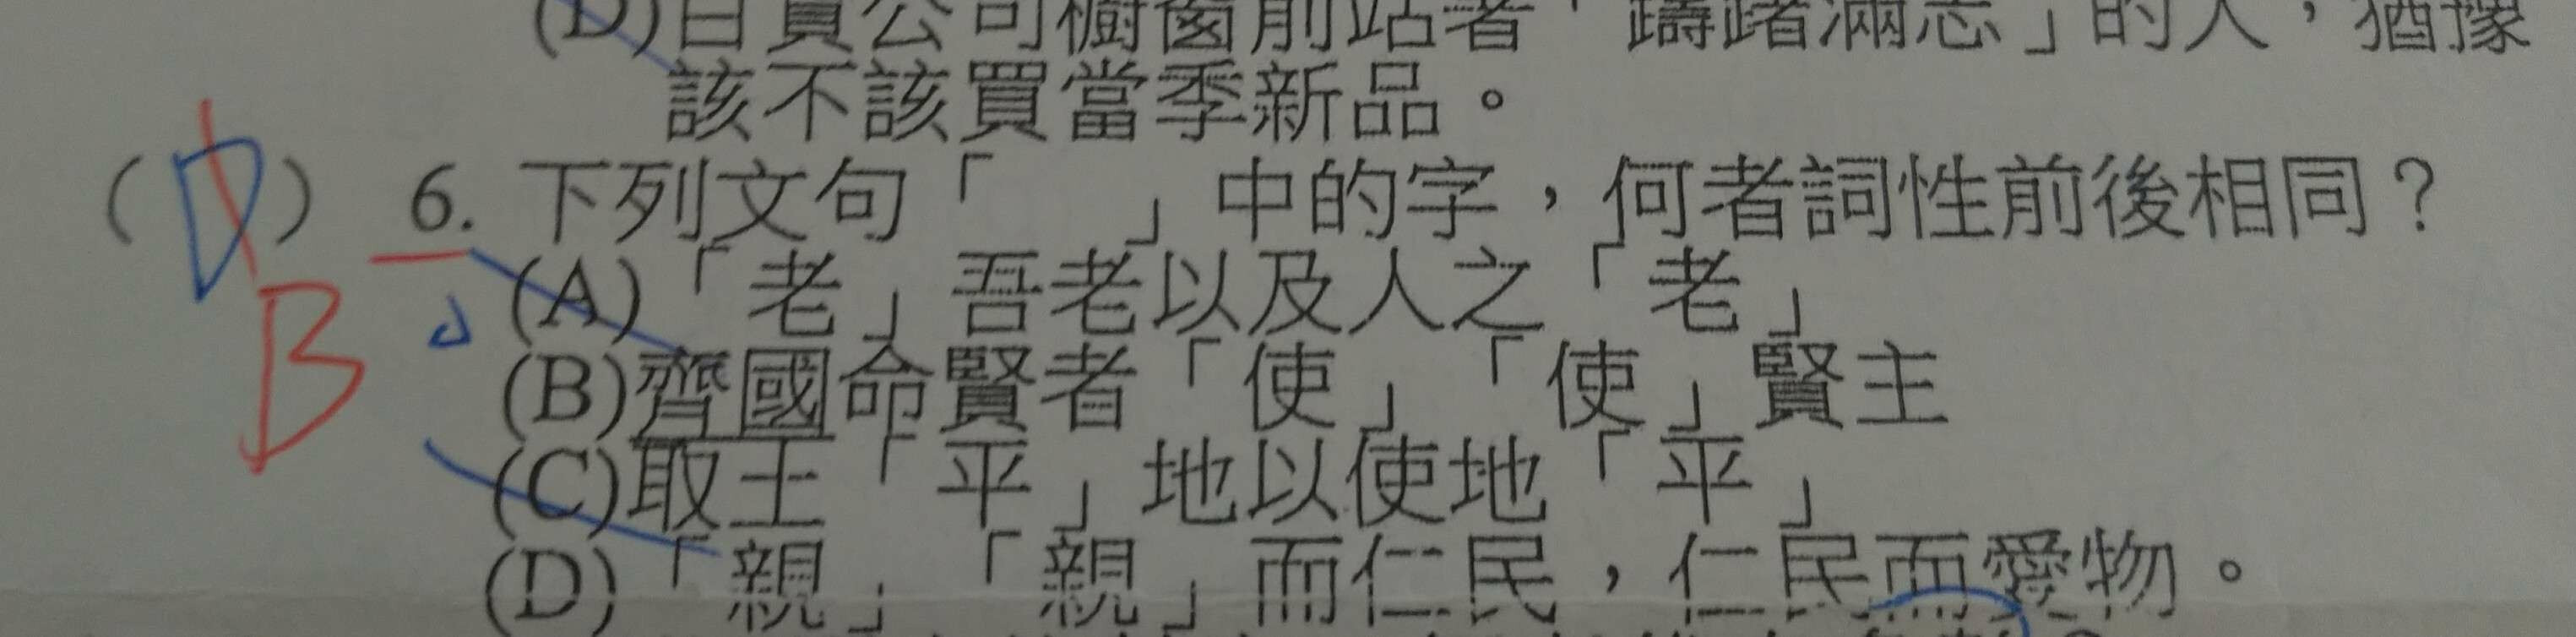 (D)百貨公司櫥窗前站著「躊躇滿志」的人，猶豫
該不該買當季新品。
(D) 6. 下列文句「　　」中的字，何者詞性前後相同？
B
(A)「老」吾老以及人之「老」
(B)齊國命賢者「使」「使」賢主
(C)取土「平」地以使地「平」
(D)「親」「親」而仁民，仁民而愛物。